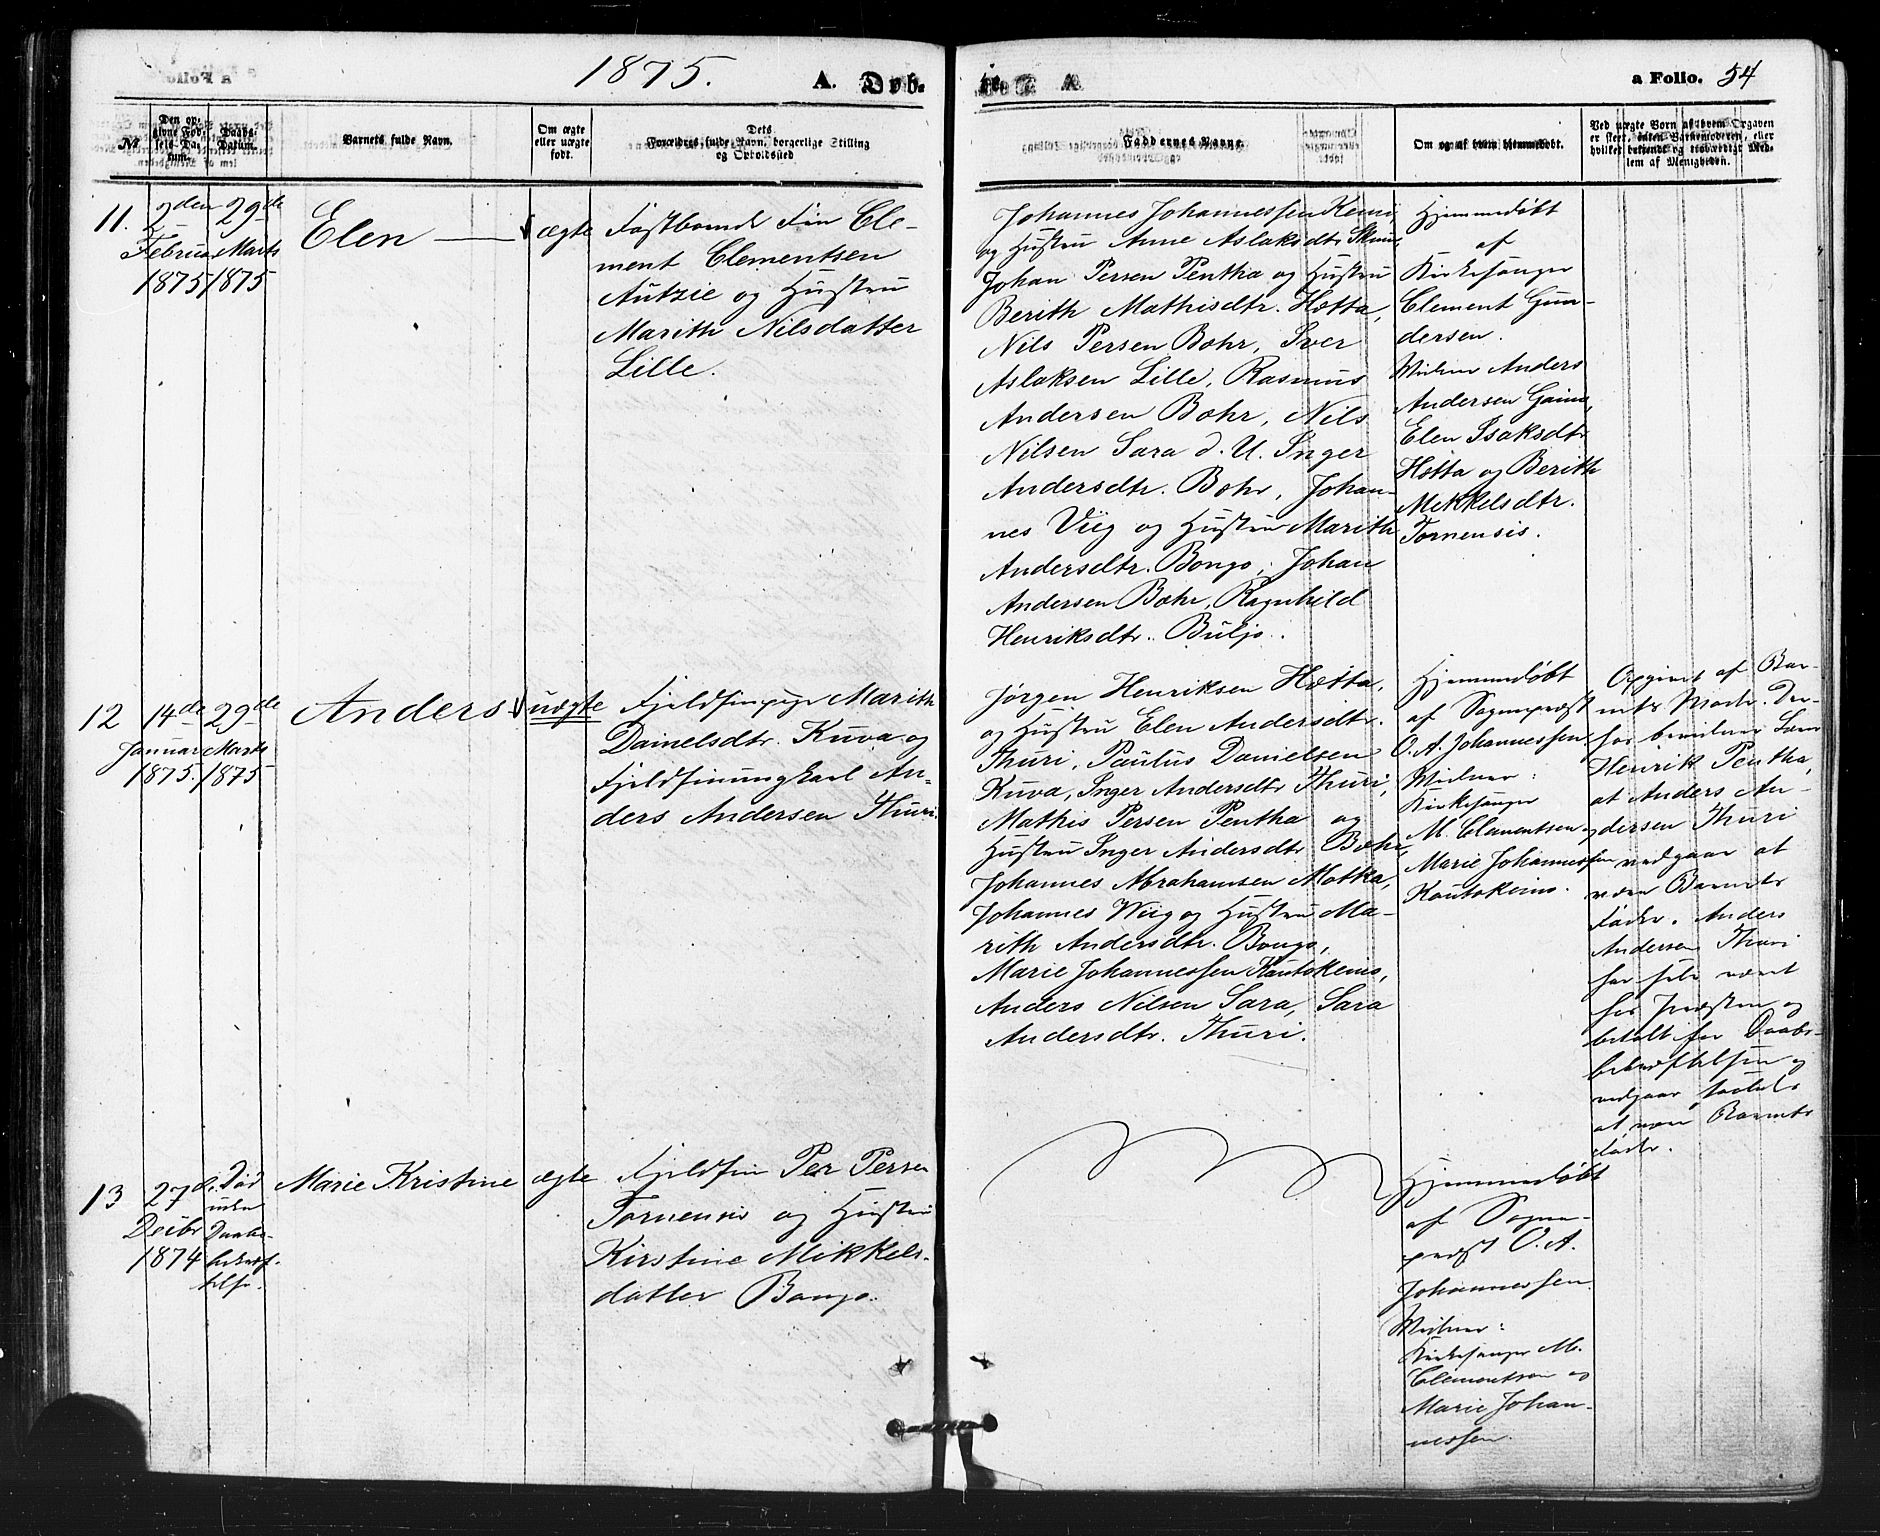 1875.
A. Døb-
te.
a Folio. 54
№
Den op-
givne Fød-
sels-Da-
tum.
Daabs-
Datum.
Barnets fulde Navn.
Om ægte
eller uægte
født.
Dets
Forældres fulde Navn, borgerlige Stilling
og Opholdssted
Faddernes Navne.
Om og af hvem hjemmedøbt.
Ved uægte Børn af hvem Opgaven
er skeet, enten Barnemoderen, eller
hvilket bekjendt og troværdigt Med-
lem af Menigheden.
11.
2den
Februar
1875
29de
Marts
1875
Elen
ægte
Fastboende Fin Cle-
ment Clementsen
Autzie og Hustru
Marith Nilsdatter
Lille.
Johannes Johannessen Kemi,
og Hustru Anne Aslaksdtr
Johan Persen Pentha og Hustru
Berith Mathisdtr. Hætta,
Nils Persen Bohr, Iver
Aslaksen Lille, Rasmus
Andersen Bohr, Nils
Nilsen Sara d. U. Inger
Andersdtr. Bohr, Johan-
nes Viig og Hustru Marith
Andersdtr. Bongo, Johan
Andersen Bohr, Ragnhild
Henriksdtr. Buljo.
Hjemmedøbt
af
Kirkesanger
Clement Gun-
dersen.
Vidner Anders
Andersen Gaino,
Elen Isaksdtr
Hætta og Berith
Mekkelsdtr.
Tornensis.
12
14de
Januar
1875.
29de
Marts
1875
Anders
uægte
Fjeldfinpige Marith
Dainelsdtr. Kuva og
Fjeldfinungkarl An-
ders Andersen Thuri.
Jørgen Henriksen Hætta,
og Hustru Elen Andersdtr.
Thuri, Paulus Danielsen
Kuva, Inger Andersdtr Thuri,
Mathis Persen Pentha og
Hustru Inger Andersdtr Bohr,
Johannes Abrahamsen Motka,
Johannes Wiig og Hustru Ma-
rith Andersdtr. Bongo,
Marie Johannessen Kautokeino,
Anders Nilsen Sara, Sara
Andersdtr. Thuri.
Hjemmedøbt
af Sognepræst
O. A. Johannessen.
Vidner:
Kirkesanger
M. Clementsen og
Marie Johannessen
Kautokeino.
Opgivet af Bar-
nets Moder. Der-
for bevidner
Henrik Pentha,
at Anders An-
dersen Thuri
vedgaar at
være Barnets
Fader. Anders
Andersen Thuri
har selv været
hos Præsten og
betalt for Daabs-
bekræftelsen og
vedgaar saaledes
at være Barnets
Fader.
13
27de
Decbr
1874
Død
uden
Daabs-
bekræf-
telse.
Marie Kristine
ægte
Fjeldfin Per Persen
Tornensis og Hustru
Kirstine Mikkels-
datter Bongo.
Hjemmedøbt
af Sogne-
præst O. A.
Johannessen
Vidner:
Kirkesanger M.
Clementsen og
Marie Johan-
nessen.